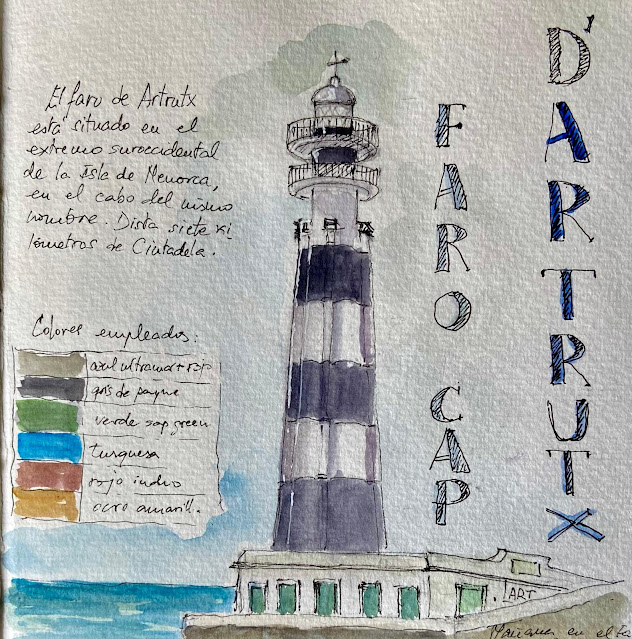 El faro de Artrutx
está situado en el
extremo suroccidental
de la Isla de Menorca,
en el cabo del mismo
nombre. Dista siete ki
lómetros de Ciutadela.
FARO CAP
D'ARTRUTX
Colores empleados:
azul ultramar + rojo
gris de payne
verde sap green
turquesa
rojo indio
ocre amarill.
ART
en el